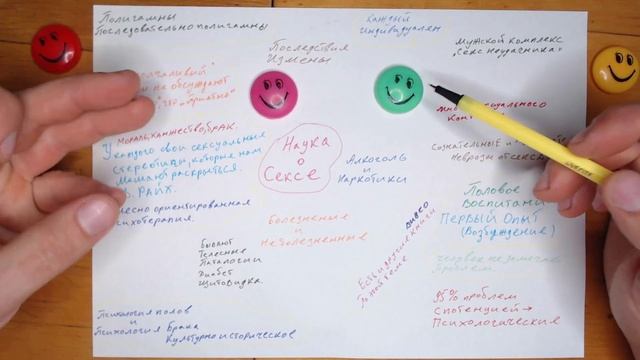 Полигамны
Последовательно полигамны
Каждый
индивидуален
Мужской комплекс
"секс неудачника"
Последствия
Измены
не обсуждают
Мораль, ханжество, брак.
У каждого свои сексуальные
стереотипы, которые нам
мешают раскрыться.
В. Райх.
ориентированная
психотерапия.
Наука
о
Сексе
Алкоголь
и
Наркотики
Сознательные и
Неврозы от секса
Половое
Воспитание
Первый опыт
(Возбуждение)
Болезненные
и
Неболезненные
видео
Есть и другие книги
По той теме
Бывают
Телесные
Паталогии
Диабет
Щитовидка.
Человек не замечает
проблем
95% проблем
С потенцией →
Психологические
Психология полов
и
Психология брака
Культурно историческое